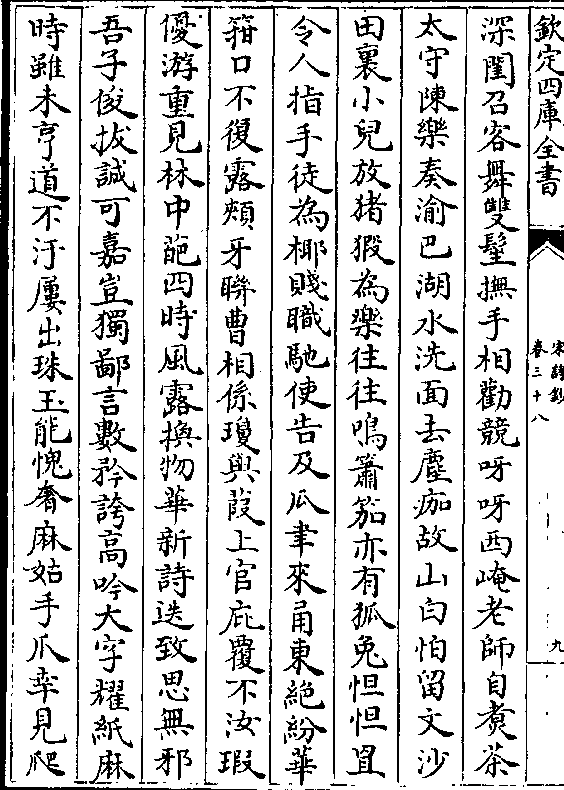 欽定四庫全書
宋詩鈔
卷三十八
九
深閨召客舞雙鬟撫手相勸競呀呀西崦老師自煑茶
太守陳樂奏渝巴湖水洗面去塵痂故山白怕留文沙
田裏小兒放猪猳為樂往往鳴簫笳亦有狐兔怛怛罝
令人指手徒為椰賤職馳使告及瓜聿來甬東絶紛華
箝口不復露頰牙聨曹相係瓊與葭上官庇覆不汝瑕
優游重見林中葩四時風露換物華新詩迭致思無邪
吾子俊拔誠可嘉豈獨鄙言數矜誇高吟大字耀紙麻
時雖未亨道不汙屢出珠玉能愧奢麻姑手爪幸見爬